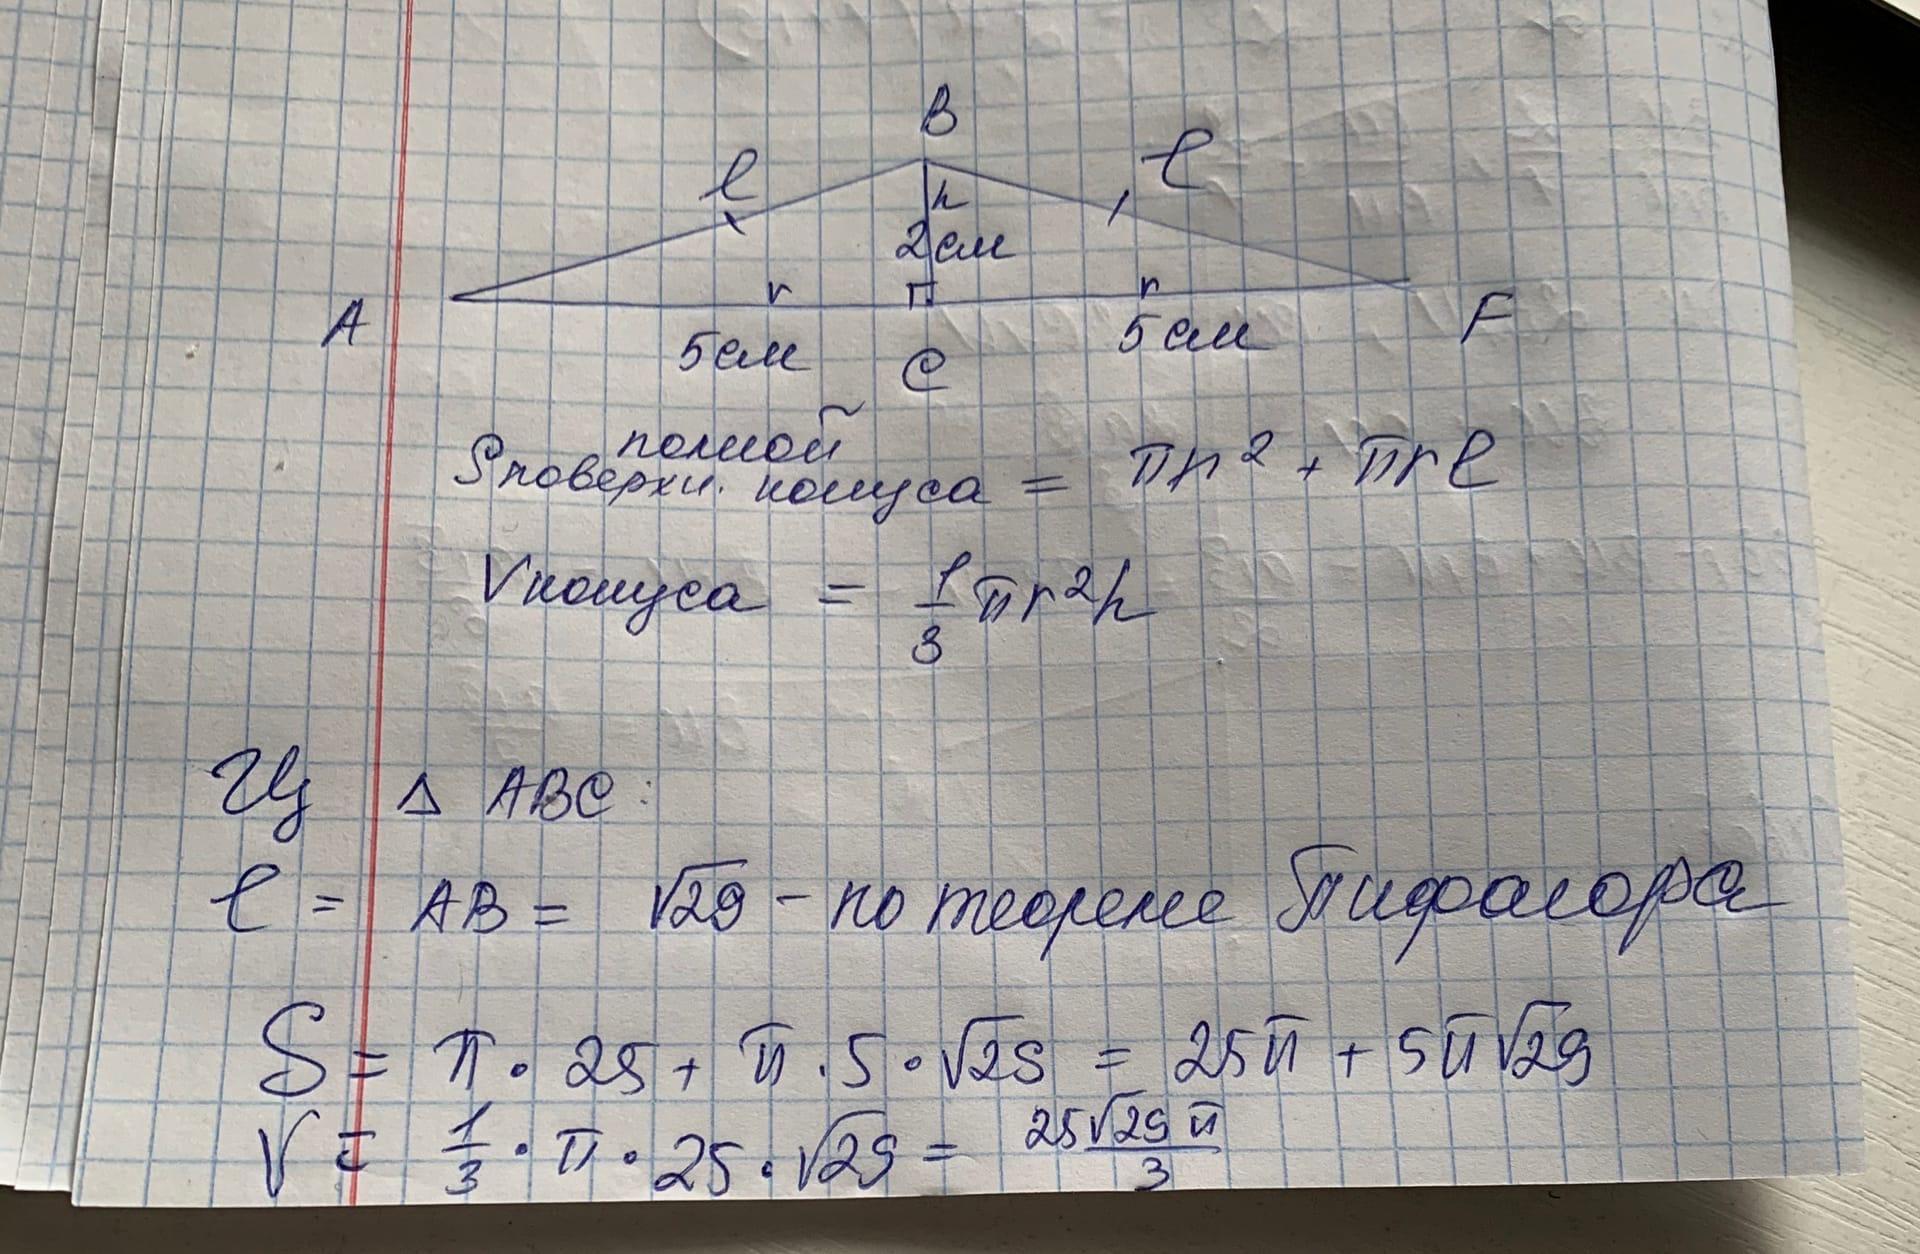 B
l l
h
2см
r r
A 5см C 5см F
Sповерхн. полной конуса = πr² + πrl
Vконуса = 1/3 πr²h
Из Δ ABC:
l = AB = √29 - по теореме Пифагора
S = π · 25 + π · 5 · √29 = 25π + 5π√29
V = 1/3 · π · 25 · √29 = 25√29 π/3